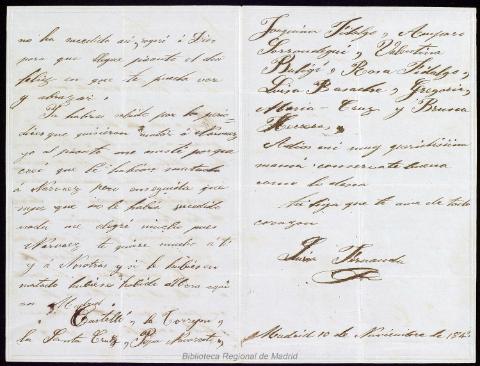 no ha sucedido así, ruego á Dios
para que llegue pronto el dia
feliz en que te pueda ver
y abrazar.
Ya habras sabido por los perió-
dicos que quisieron matar á Narvaez
yo al pronto me asusté porque
creí que le habian matado
á Narvaez pero enseguida que
supe que no le habia sucedido
nada me alegré mucho pues
Narvaez te quiere mucho a ti
y á Nosotras y si le hubiesen
matado hubiera habido
en Madrid
Castellá, la Torrejon,
la Santa Cruz, Pepa
Joaquina Fidalgo, Amparo
Sorrondegui, Valentina
Rosa Fidalgo,
Luisa Gregoria,
Maria-Cruz y
Adios mi muy queridisima
mamá consérvate buena
como lo desea
tu hija que te ama de todo
corazon
Luisa Fernanda
Madrid 10 de Noviembre de
Biblioteca Regional de Madrid